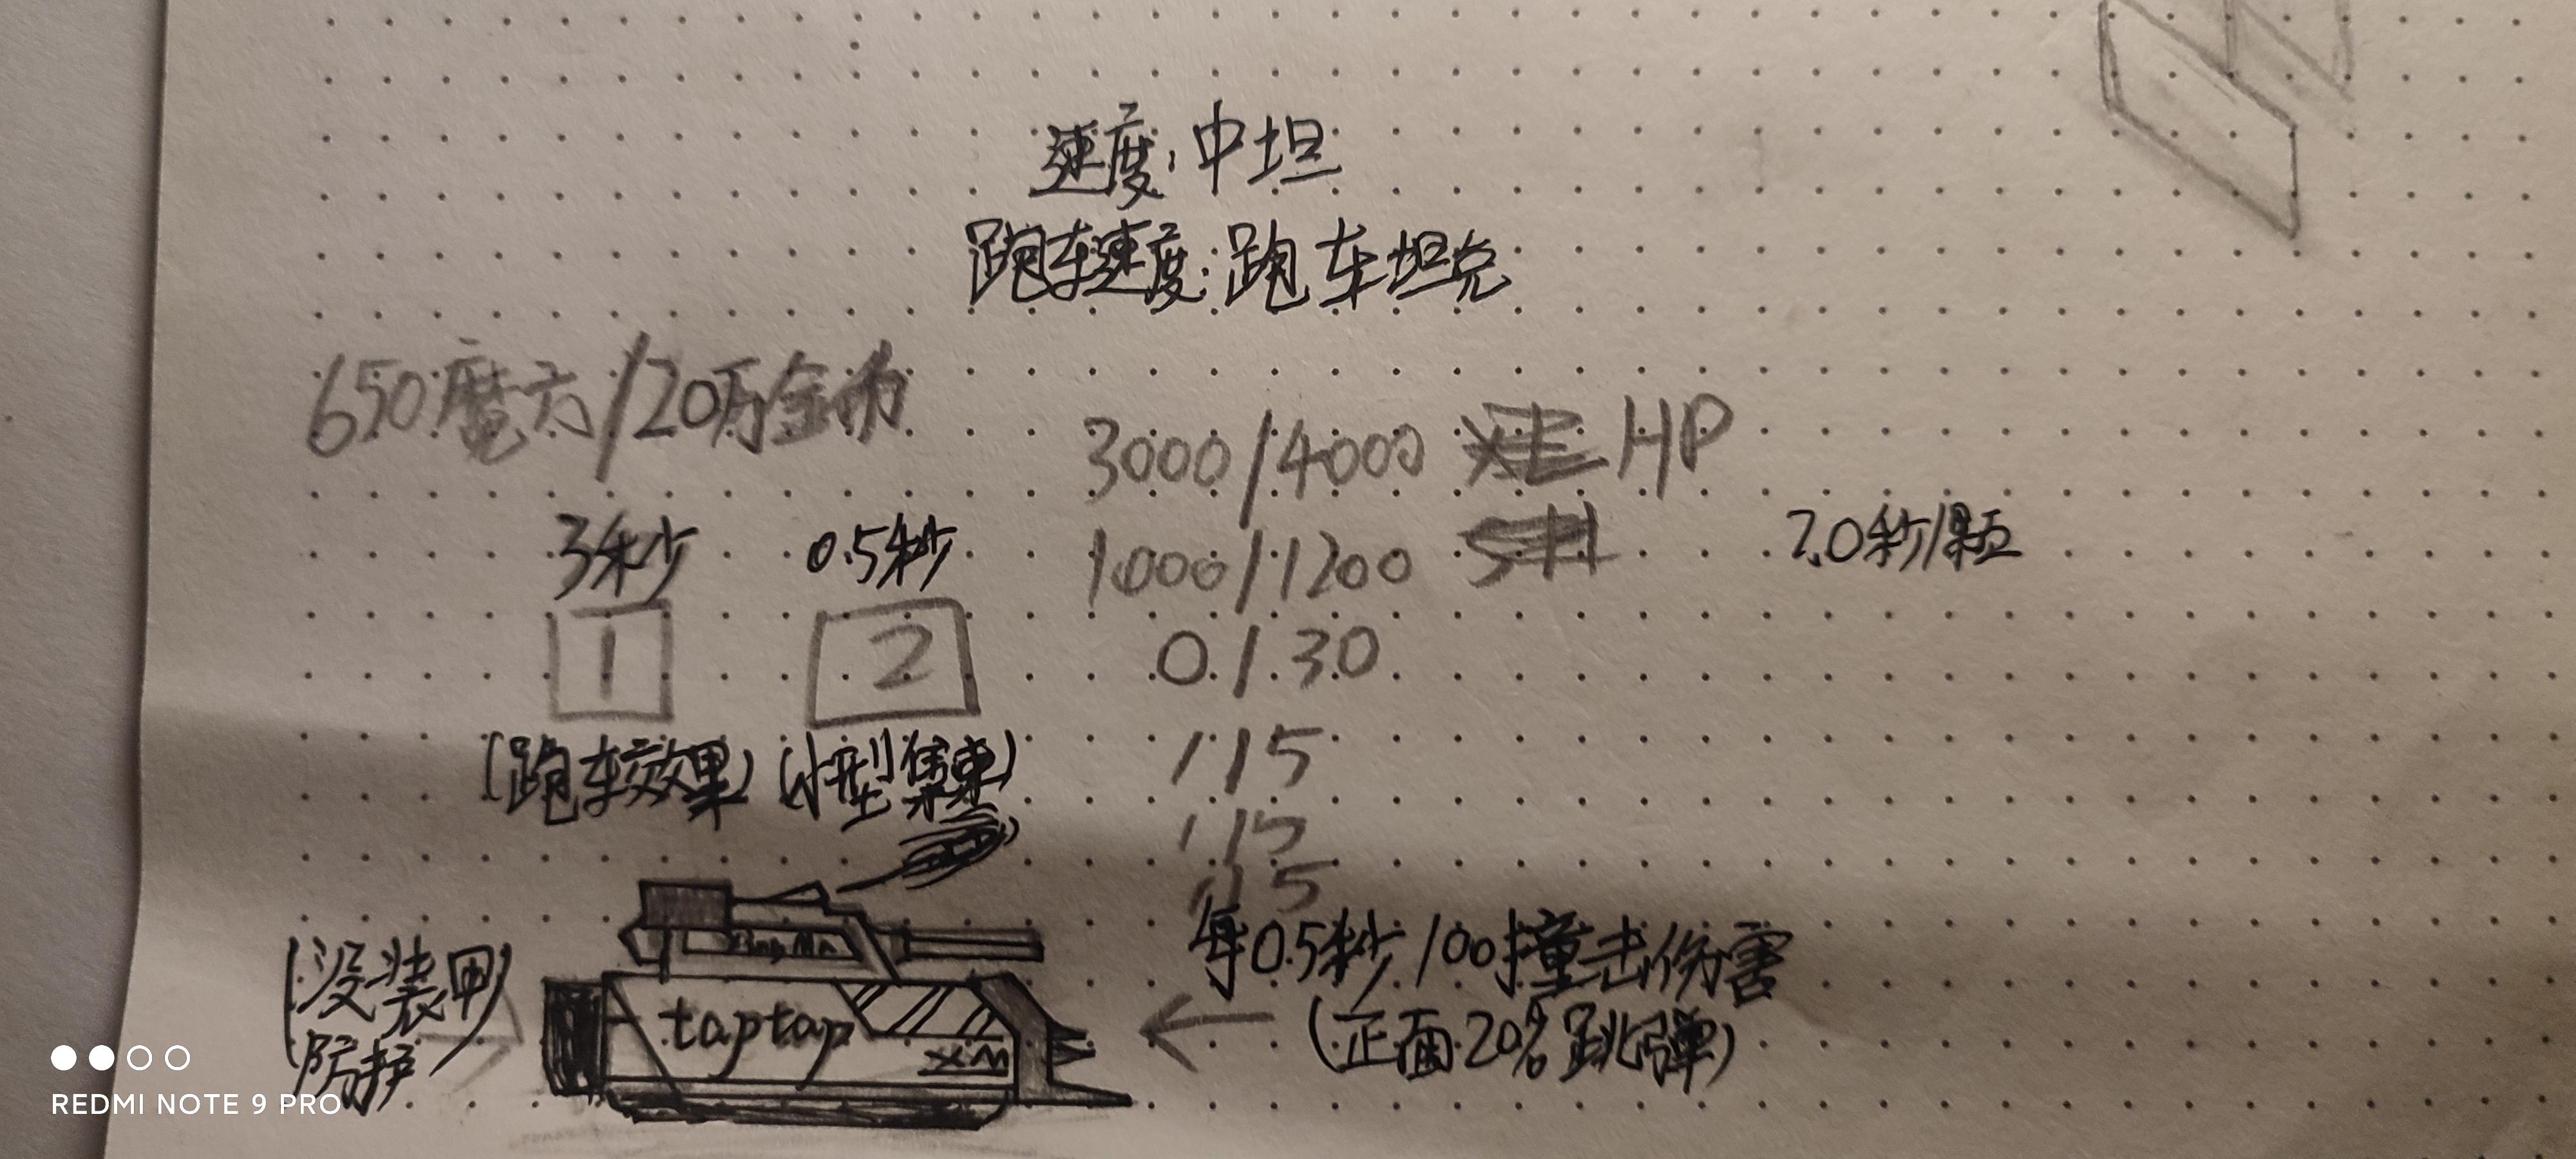 速度:中坦
跑车速度:跑车坦克
650魔方/20万金币
3000/4000 HP
3秒 0.5秒
1000/1200
7.0秒/颗
1 2
0/30
(跑车效果) (小型集束)
1/5
1/5
1/5
每0.5秒/100撞击伤害
(正面20%跳弹)
(没装甲
防护)
taptap
XM
REDMI NOTE 9 PRO